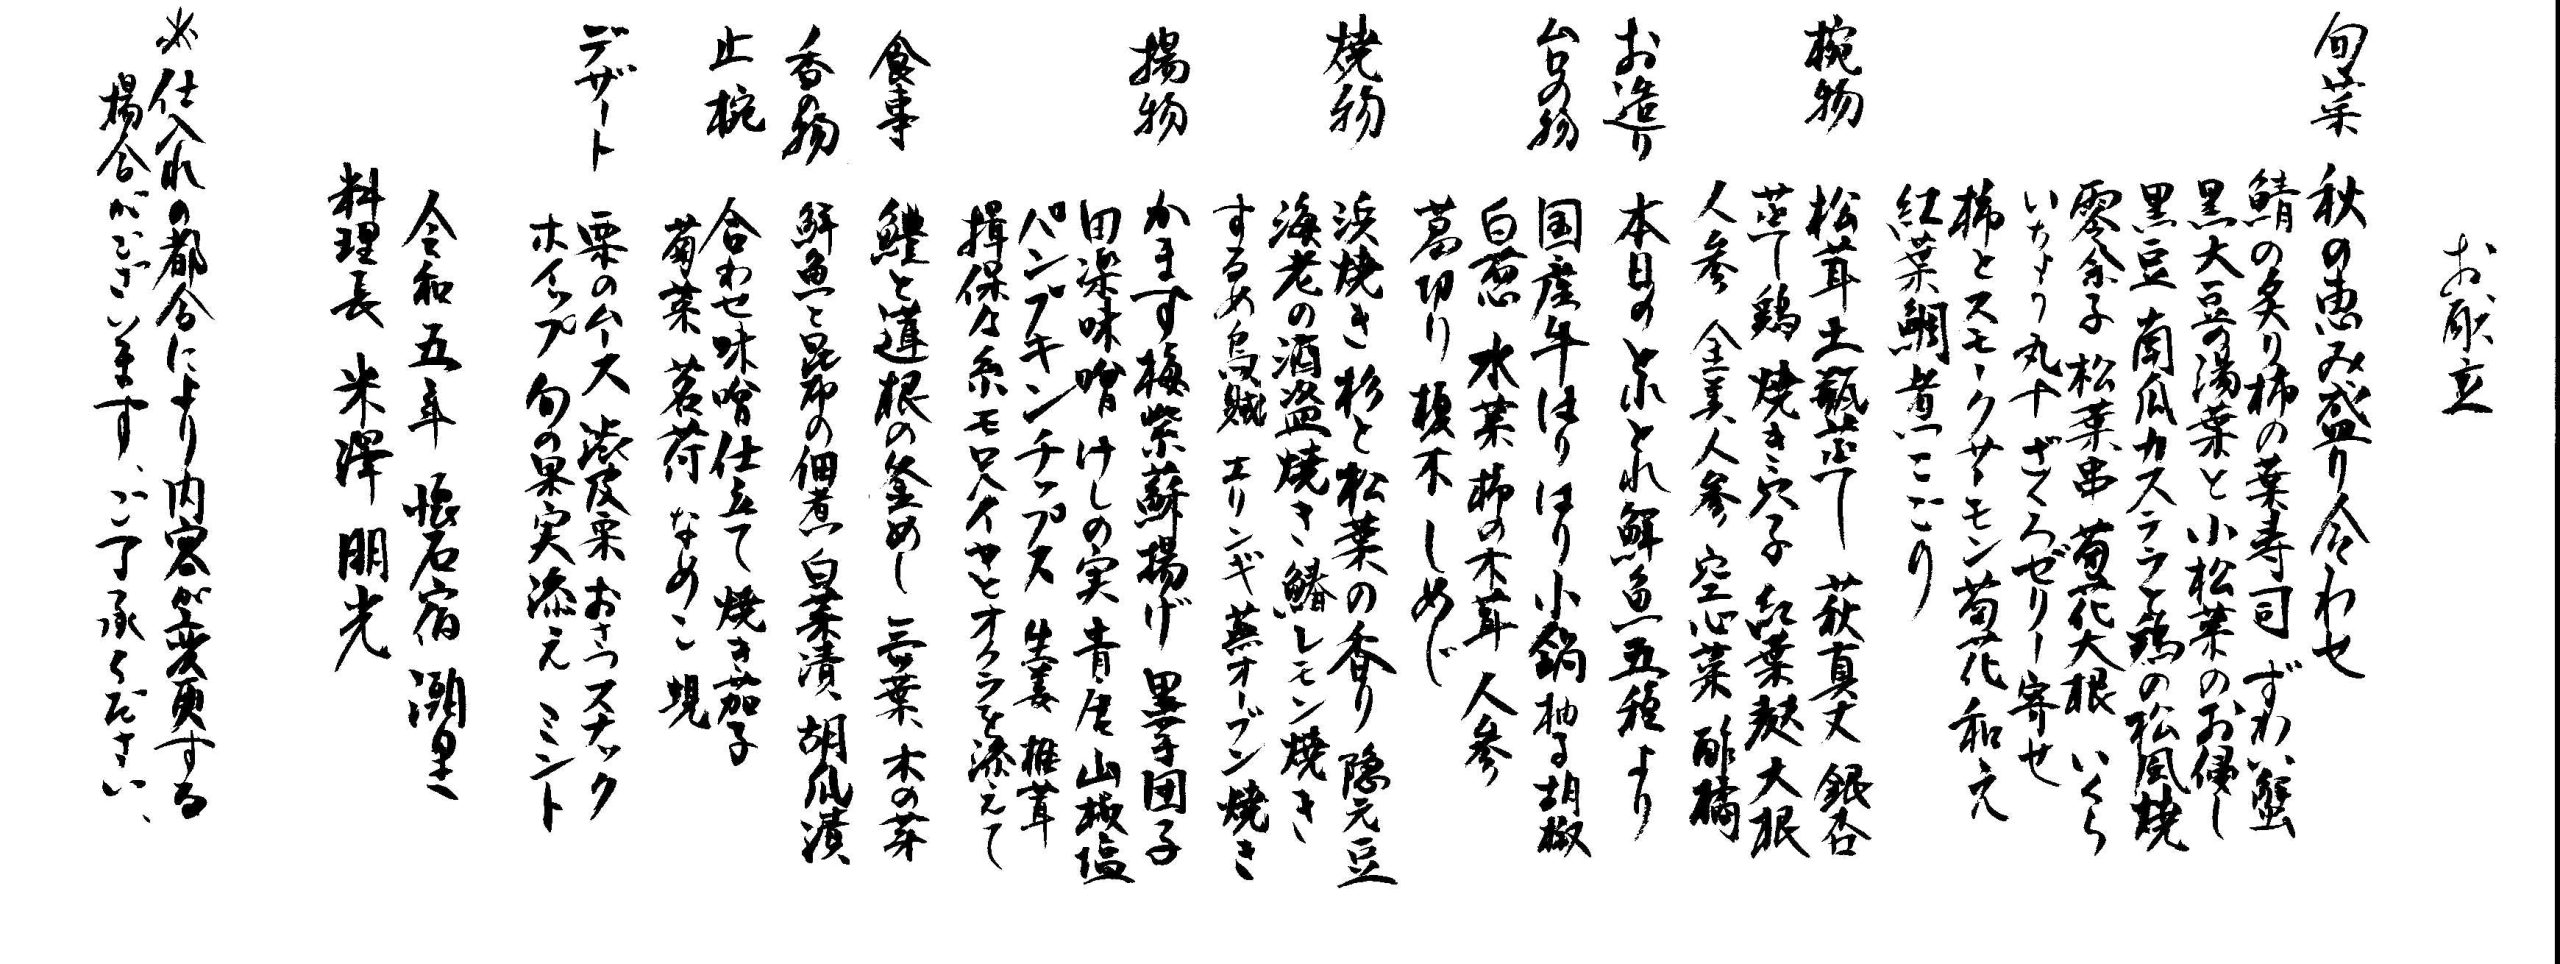 お献立
旬菜 秋の恵み盛り合わせ
鯖の炙り柿の葉寿司 ずわい蟹
黒大豆の湯葉と小松菜のお浸し
黒豆 南瓜カステラ 鶏の松風焼
零余子 松葉串 菊花大根 いくら
いちょう丸十 ざくろゼリー寄せ
柿とスモークサーモン菊花和え
紅葉鯛煮こごり
椀物 松茸土瓶蒸し 萩真丈 銀杏
蒸し鶏 焼き穴子 紅葉麸 大根
人参 金美人参 空心菜 酢橘
お造り 本日のとれとれ鮮魚五種より
台の物 国産牛はりはり小鍋 柚子胡椒
白葱 水菜 柳の木茸 人参
葛切り 榎木 しめじ
焼物 浜焼き杉と松葉の香り 隠元豆
海老の酒盗焼き 鰆レモン焼き
するめ烏賊 エリンギ 蕪オーブン焼き
揚物 かます梅紫蘇揚げ 里芋団子
田楽味噌 けしの実 青唐 山椒塩
パンプキンチップス 生姜 椎茸
揖保乃糸モロヘイヤとオクラを添えて
食事 鱧と蓮根の釜めし 三つ葉 木の芽
香の物 鮮魚と昆布の佃煮 白菜漬 胡瓜漬
止椀 合わせ味噌仕立て 焼き茄子
菊菜 茗荷 なめこ 蜆
デザート 栗のムース 渋皮栗 おさつスナック
ホイップ 旬の果実添え ミント
令和五年 懐石宿 潮里
料理長 米澤 朋光
※仕入れの都合により内容が変更する
場合がございます、ご了承ください、